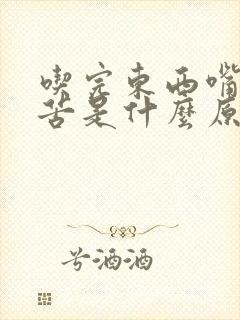 喫完東西嘴
苦是什麼原
兮酒酒